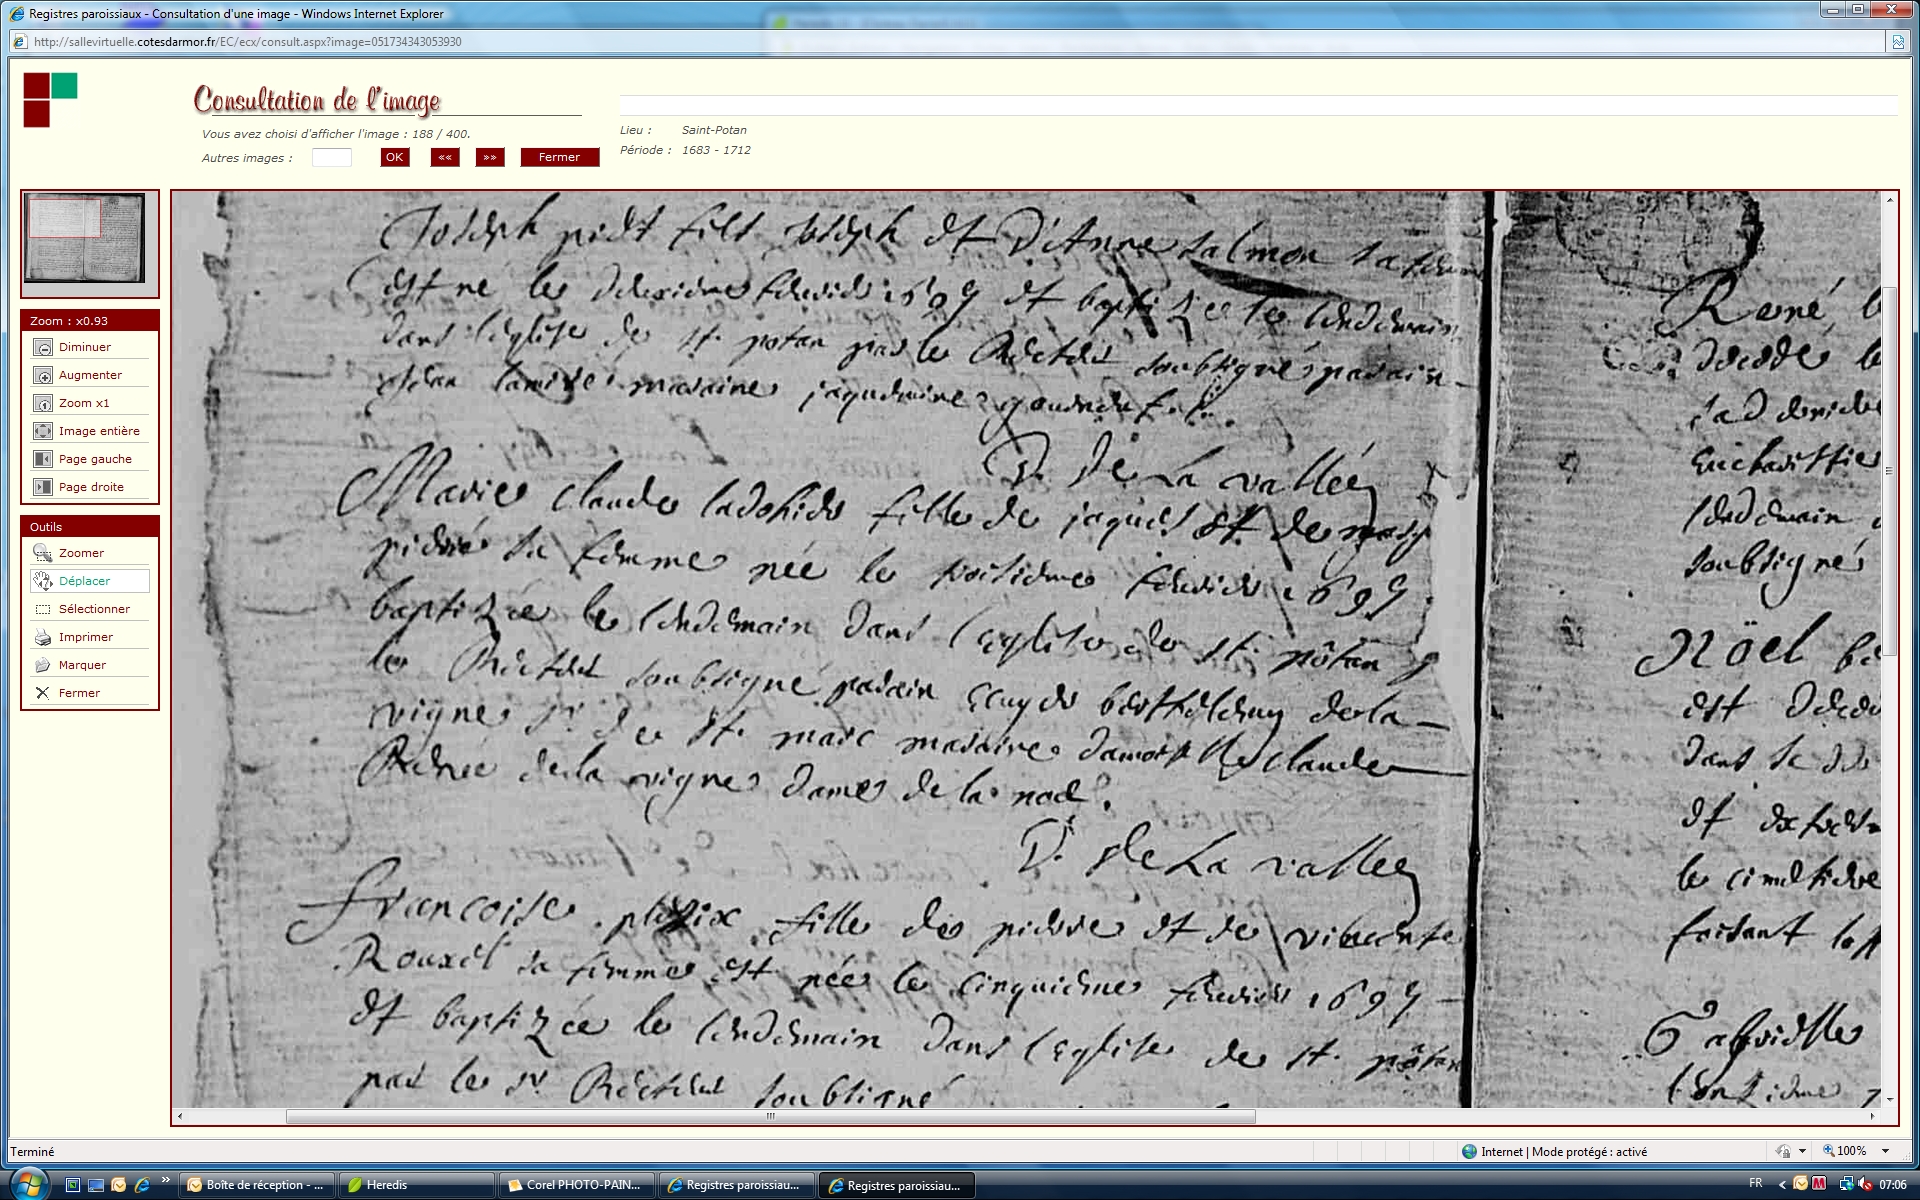 Registres paroissiaux - Consultation d'une image - Windows Internet Explorer
http://sallevirtuelle.cotesdarmor.fr/EC/ecx/consult.aspx?image=051734343053930
Consultation de l'image
Vous avez choisi d'afficher l'image : 188 / 400.
Autres images :
OK
««
»»
Fermer
Lieu : Saint-Potan
Période : 1683 - 1712
Zoom : x0.93
Diminuer
Augmenter
Zoom x1
Image entière
Page gauche
Page droite
Outils
Zoomer
Déplacer
Sélectionner
Imprimer
Marquer
Fermer
Joseph fils Joseph et D'Anne Salmon sa femme
est né le deuxieme fevrier 1697 et baptizé le lendemain
dans l'eglise de St. potan par le Recteur soubsigné parain
maraine jaquemine
D. De La vallée
Marie claude fille de jaques et de
pierre sa femme née le troisieme fevrier 1697
baptizée le lendemain dans l'eglise de St. pôtan p
le Recteur soubsigné parain Ecuyer berthelemy de la
vigne Sr. de St. marc maraine damoiselle claude
Renée de la vigne dame de la noë.
D. De La vallée
Francoise fille de pierre et de vincente
Rouxel sa femme est née le cinquieme fevrier 1697
et baptizée le lendemain dans l'eglise de St. pôtan
par le Sr. Recteur soubsigné
René
decedé le
lendemain
soubsigné
Nöel
est decedé
dans
et
le cimetiere
faisant
Terminé
Internet | Mode protégé : activé
100%
Boîte de réception - ...
Heredis
Corel PHOTO-PAIN...
Registres paroissiau...
Registres paroissiau...
FR
07:06